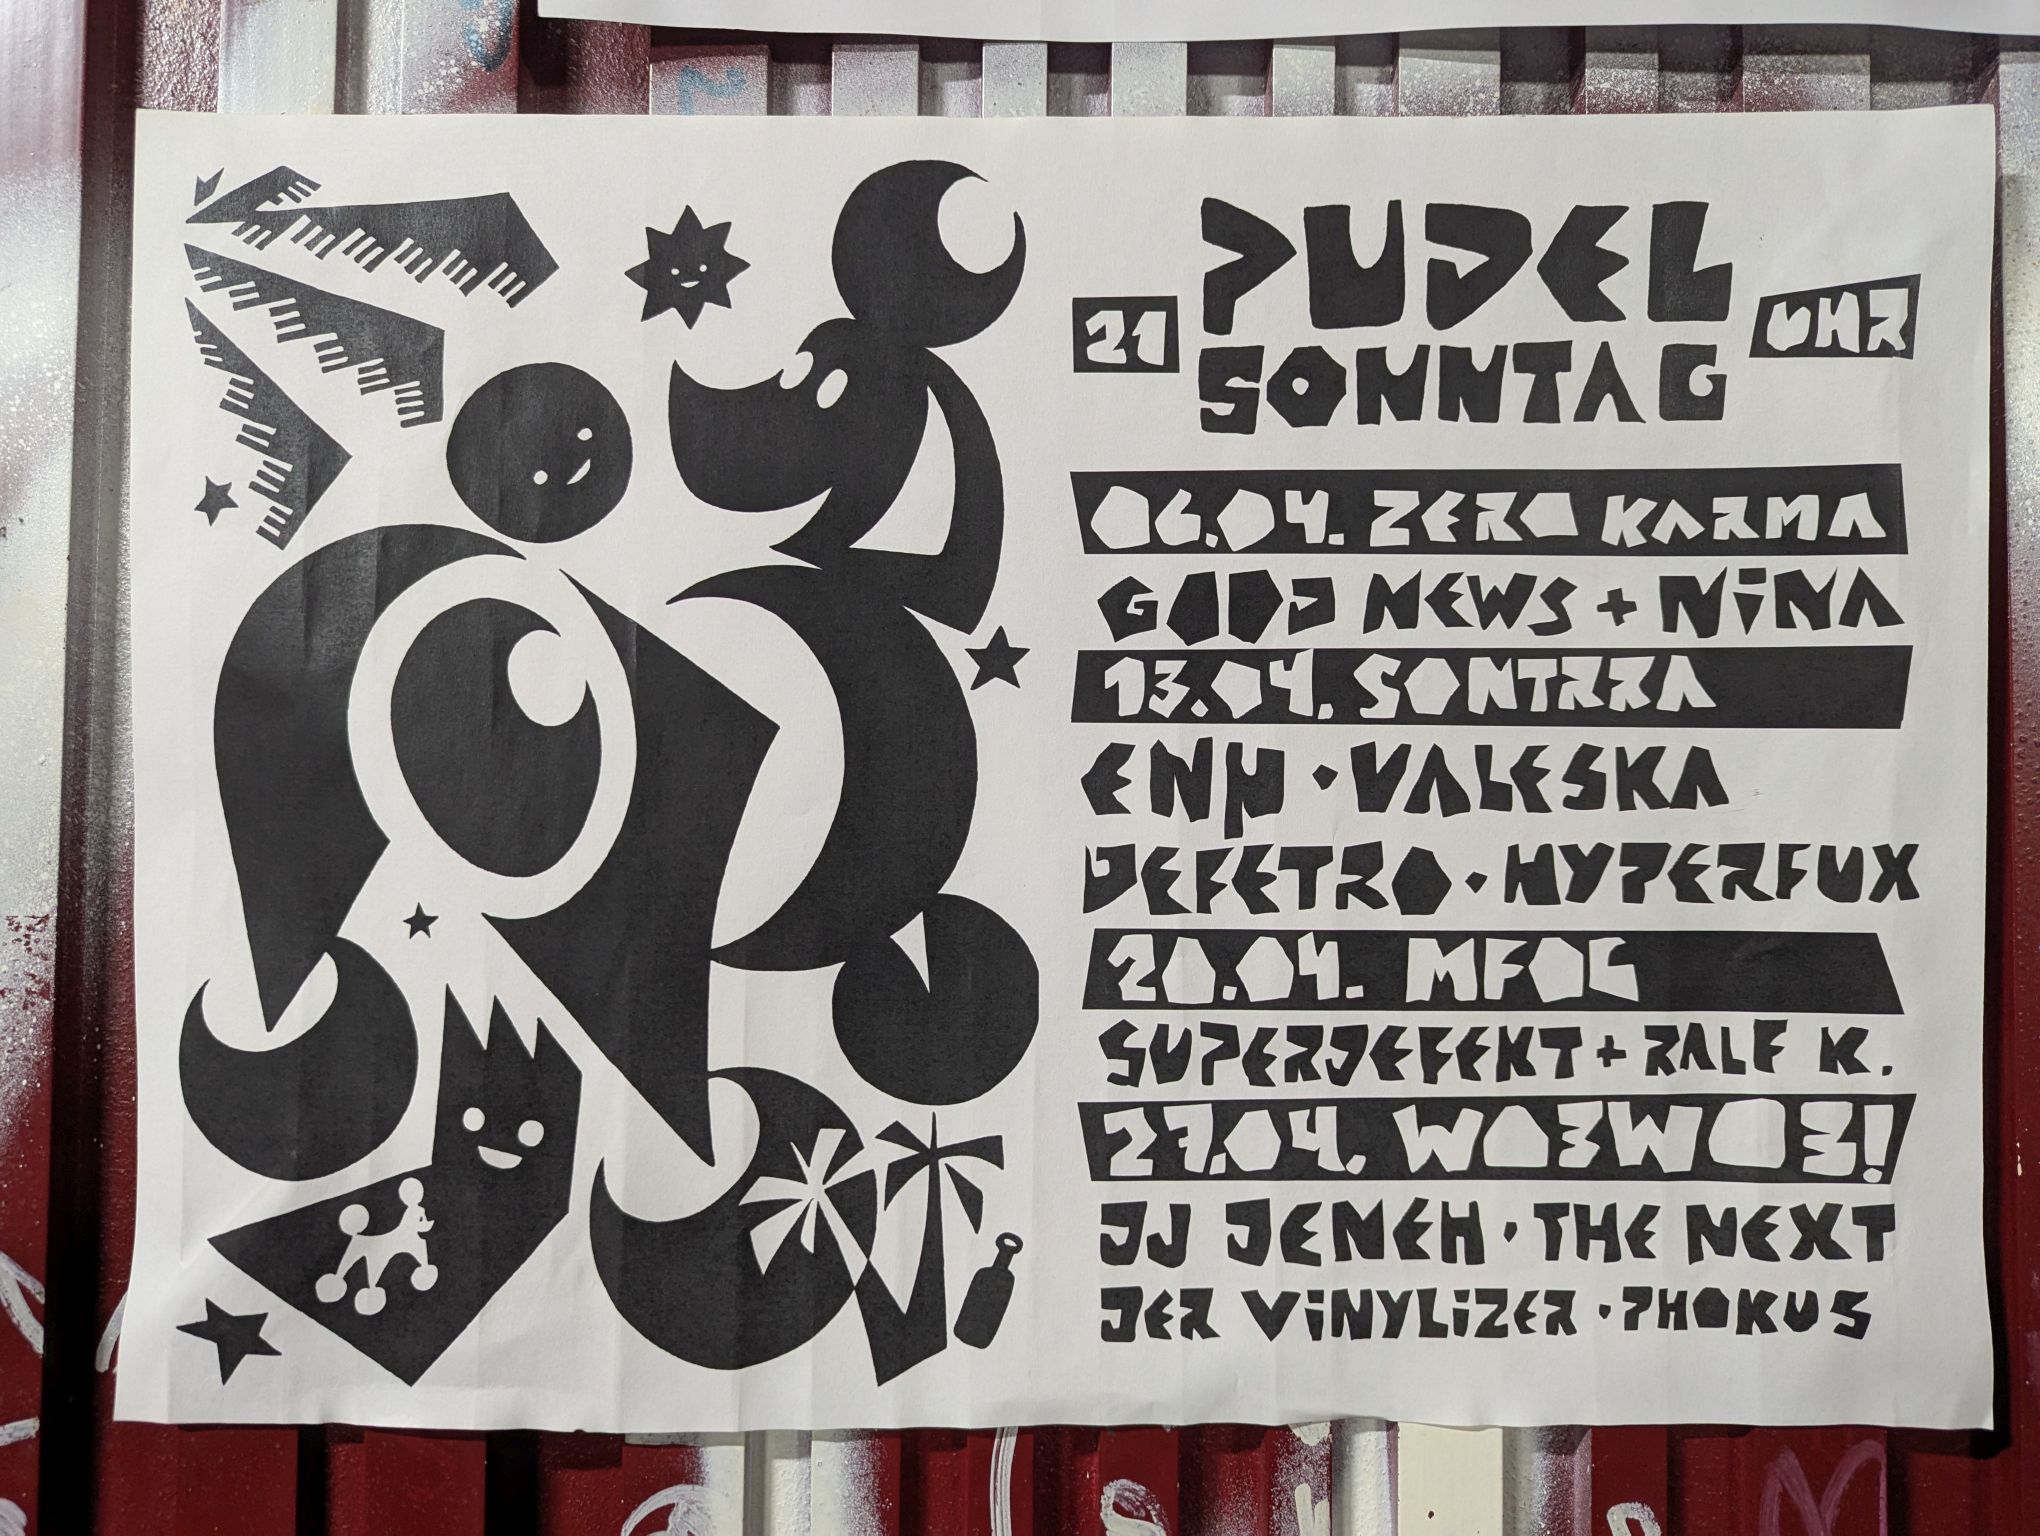 PUDEL
21 SONNTAG UHR
06.04. ZERO KARMA
GOOD NEWS + NiNA
13.04. SONTRRA
ENμ · VALESKA
DEFETRO · HYPERFUX
20.04. MFOC
SUPERDEFEKT + RALF K.
27.04. WO3WO3!
DJ DENEH · THE NEXT
DER ViNYLiZER · PHOKUS